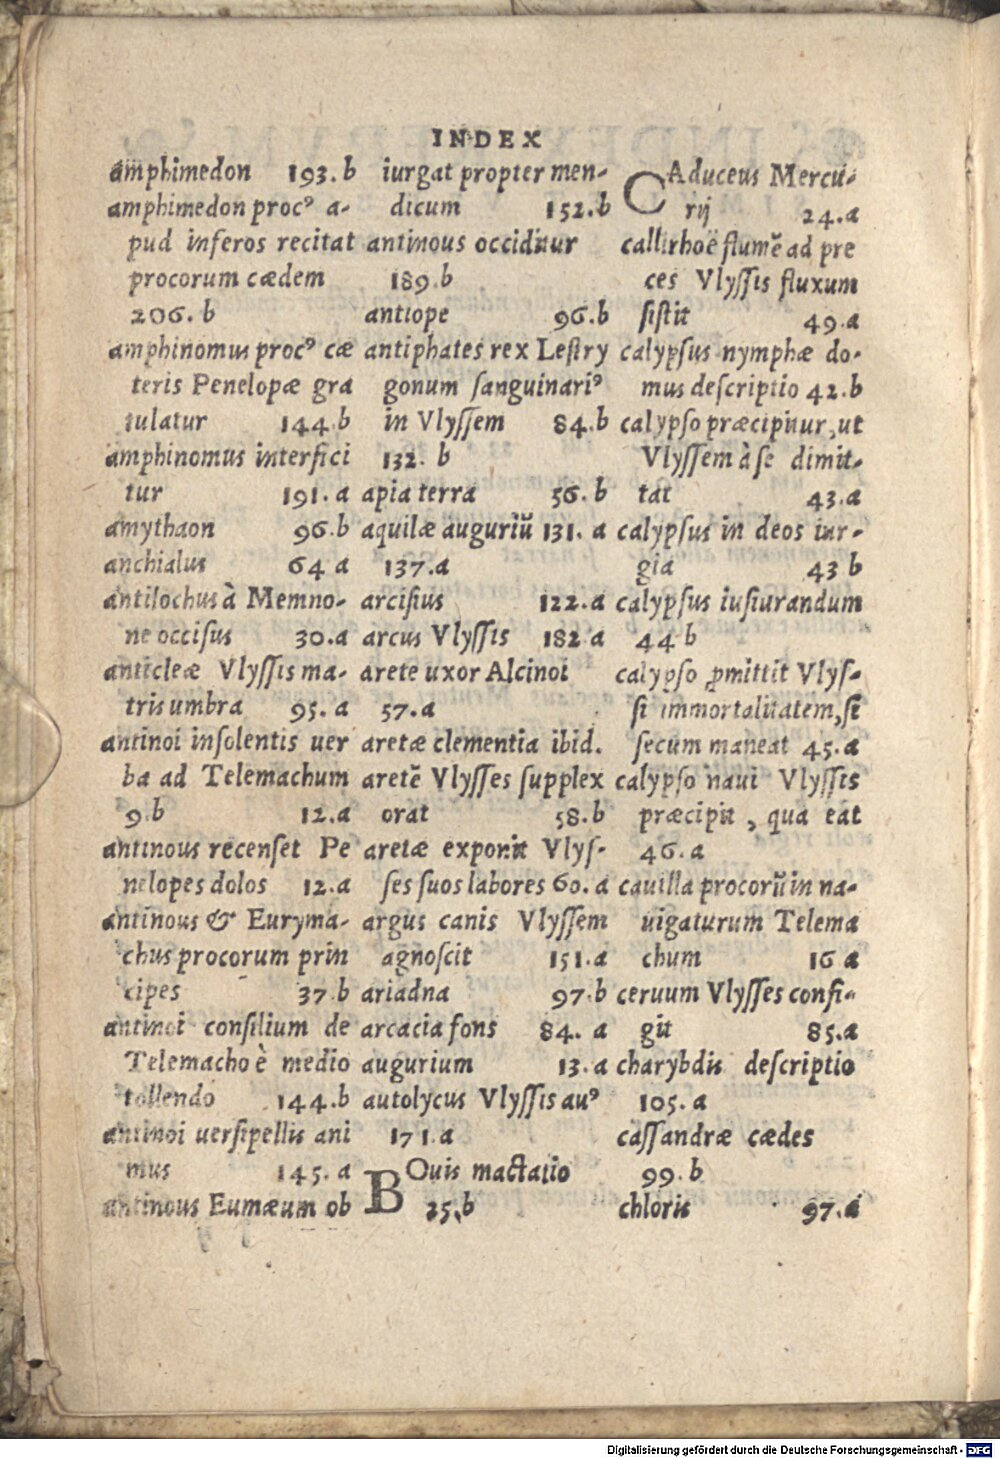 INDEX
amphimedon 193.b
amphimedon procꝰ a-
pud inferos recitat
procorum cædem
206. b
amphinomus procꝰ cæ
teris Penelopæ gra
tulatur 144.b
amphinomus interfici
tur 191. a
amythaon 96.b
anchialus 64 a
antilochus à Memno-
ne occisus 30.a
anticleæ Vlyſſis ma-
tris umbra 95. a
antinoi inſolentis uer
ba ad Telemachum
9.b 12.a
antinous recenſet Pe
nelopes dolos 12.a
antinous & Euryma-
chus procorum prin
cipes 37.b
antinoi conſilium de
Telemacho è medio
tollendo 144.b
antinoi uerſipellis ani
mus 145. a
antinous Eumæum ob
iurgat propter men-
dicum 152.b
antinous occiditur
189.b
antiope 96.b
antiphates rex Leſtry
gonum ſanguinariꝰ
in Vlyſſem 84.b
132. b
apia terra 56. b
aquilæ auguriũ 131. a
137.a
arciſius 122.a
arcus Vlyſſis 182 a
arete uxor Alcinoi
57.a
aretæ clementia ibid.
aretẽ Vlyſſes ſupplex
orat 58.b
aretæ exponit Vlyſ-
ſes ſuos labores 60. a
argus canis Vlyſſem
agnoſcit 151.a
ariadna 97.b
arcacia fons 84. a
augurium 13.a
autolycus Vlyſſis auꝰ
171.a
BOuis mactatio
25.b
CAduceus Mercu-
rij 24.a
callirhoë flumẽ ad pre
ces Vlyſſis fluxum
ſiſtit 49.a
calypſus nymphæ do-
mus deſcriptio 42.b
calypſo præcipitur, ut
Vlyſſem à ſe dimit-
tat 43.a
calypſus in deos iur-
gia 43 b
calypſus iuſiurandum
44 b
calypſo ꝓmittit Vlyſ-
ſi immortalitatem, ſi
ſecum maneat 45.a
calypſo naui Vlyſſis
præcipit, qua eat
46.a
cauilla procorũ in na-
uigaturum Telema
chum 16 a
ceruum Vlyſſes confi-
git 85.a
charybdis deſcriptio
105. a
caſſandræ cædes
99.b
chloris 97.a
Digitalisierung gefördert durch die Deutsche Forschungsgemeinschaft - DFG